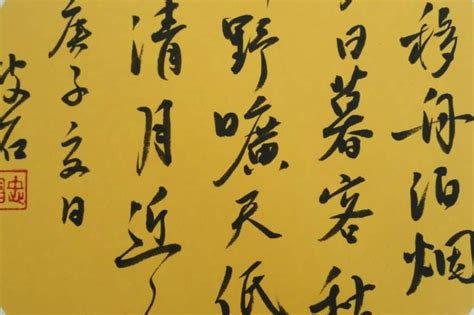 移舟泊烟
日暮客
野曠天低
清月近
庚子夏日
石